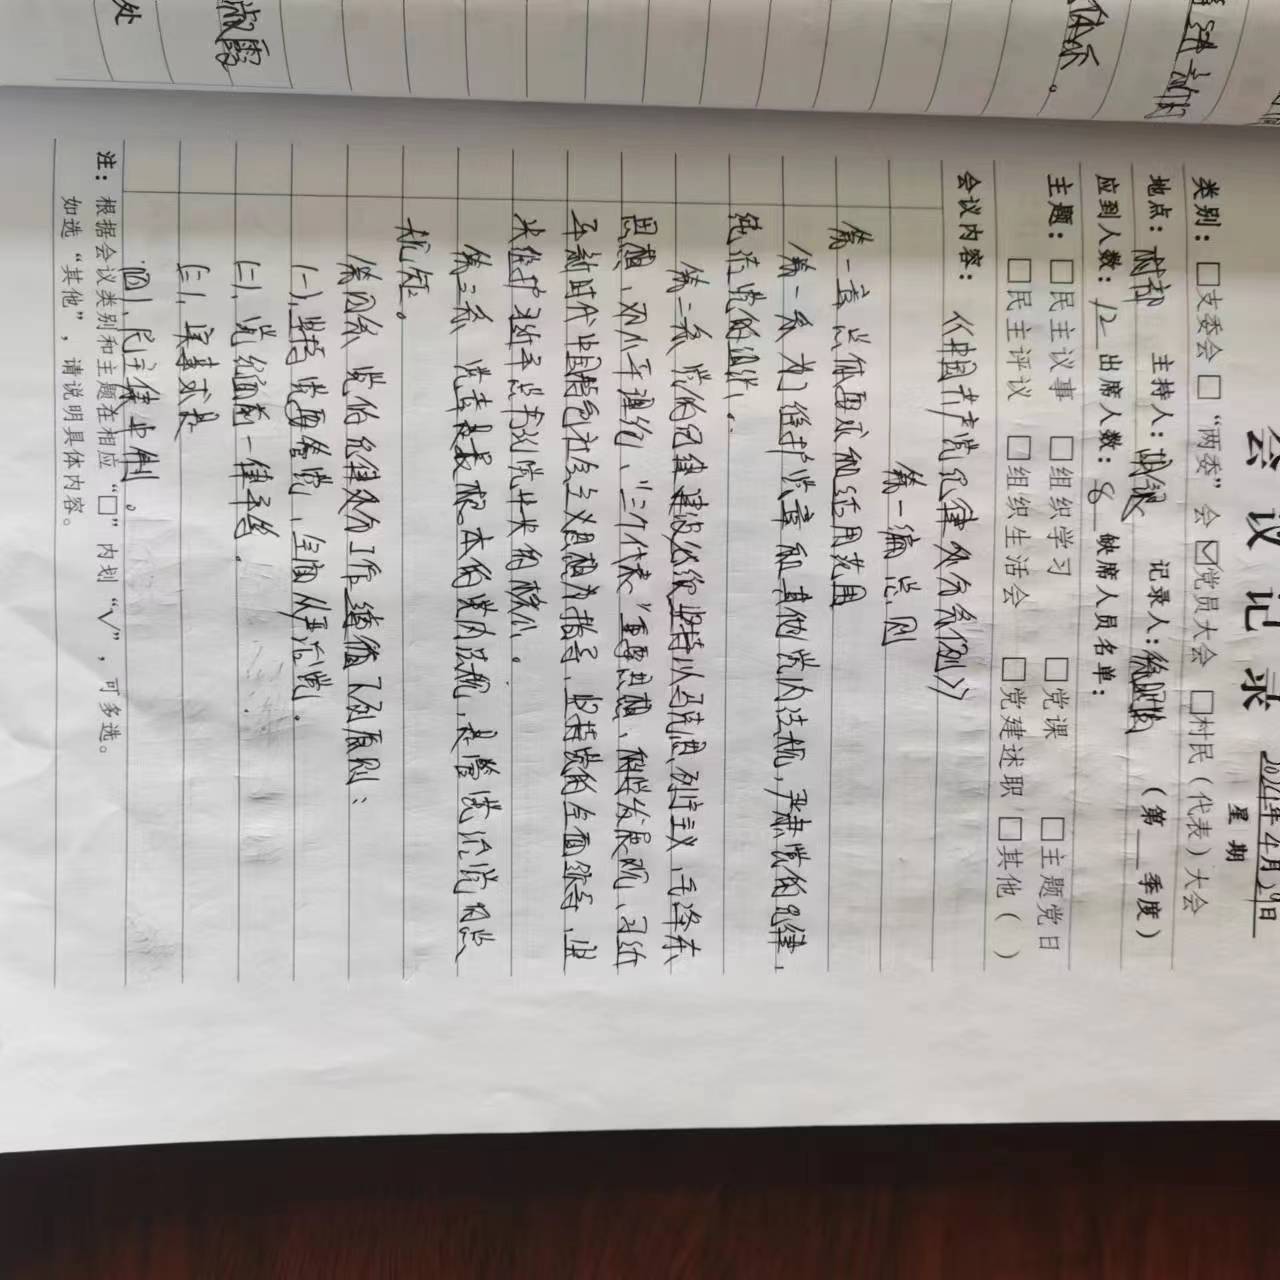 会议记录
2024年4月20日
星期
类别：□支委会 □“两委”会 ☑党员大会 □村民（代表）大会
地点：村部 主持人： 记录人： （第 季度）
应到人数：12 出席人数：8 缺席人员名单：
主题：□民主议事 □组织学习 □党课 □主题党日
□民主评议 □组织生活会 □党建述职 □其他（ ）
会议内容：《中国共产党纪律处分条例》
第一编 总则
第一章 总体要求和适用范围
第一条 为了维护党章和其他党内法规，严肃党的纪律，
纯洁党的组织。
第二条 党的纪律建设必须坚持以马克思列宁主义、毛泽东
思想、邓小平理论、“三个代表”重要思想、科学发展观、习近
平新时代中国特色社会主义思想为指导，坚持党的全面领导，坚
决维护习近平总书记党中央的核心。
第三条 党章是最根本的党内法规，是管党治党的总
规矩。
第四条 党的纪律处分工作遵循下列原则：
(一)、坚持党要管党、全面从严治党。
(二)、党纪面前一律平等。
(三)、实事求是
(四)、民主集中制。
注：根据会议类别和主题在相应“□”内划“√”，可多选。
如选“其他”，请说明具体内容。
体示。
淑霞
处